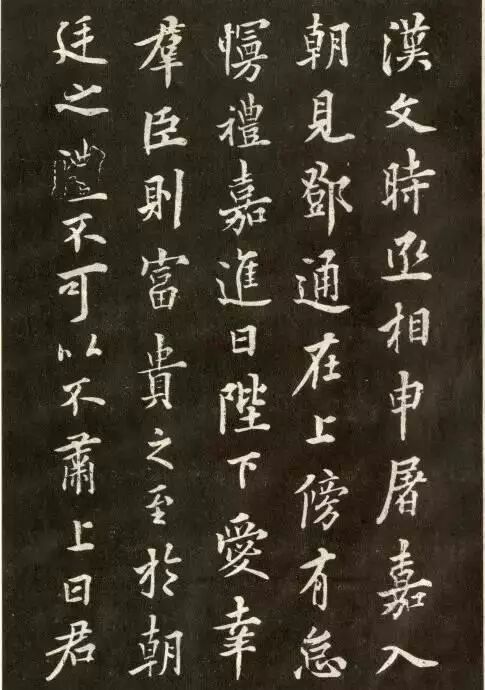 漢文時丞相申屠嘉入
朝見鄧通在上傍有怠
慢禮嘉進曰陛下愛幸
羣臣則富貴之至於朝
廷之禮不可以不肅上曰君